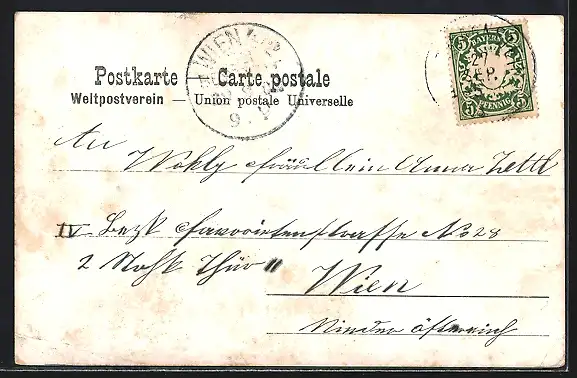 Postkarte — Carte postale
Weltpostverein — Union postale Universelle
WIEN
BAYERN
5 5
27
SEP.
5 PFENNIG 5
An
Wohlg Fräullein Anna Zettl
IV Bezk Favoritenstrasse No 28
2 Stohk Thür 11
Wien
Nieder österreich